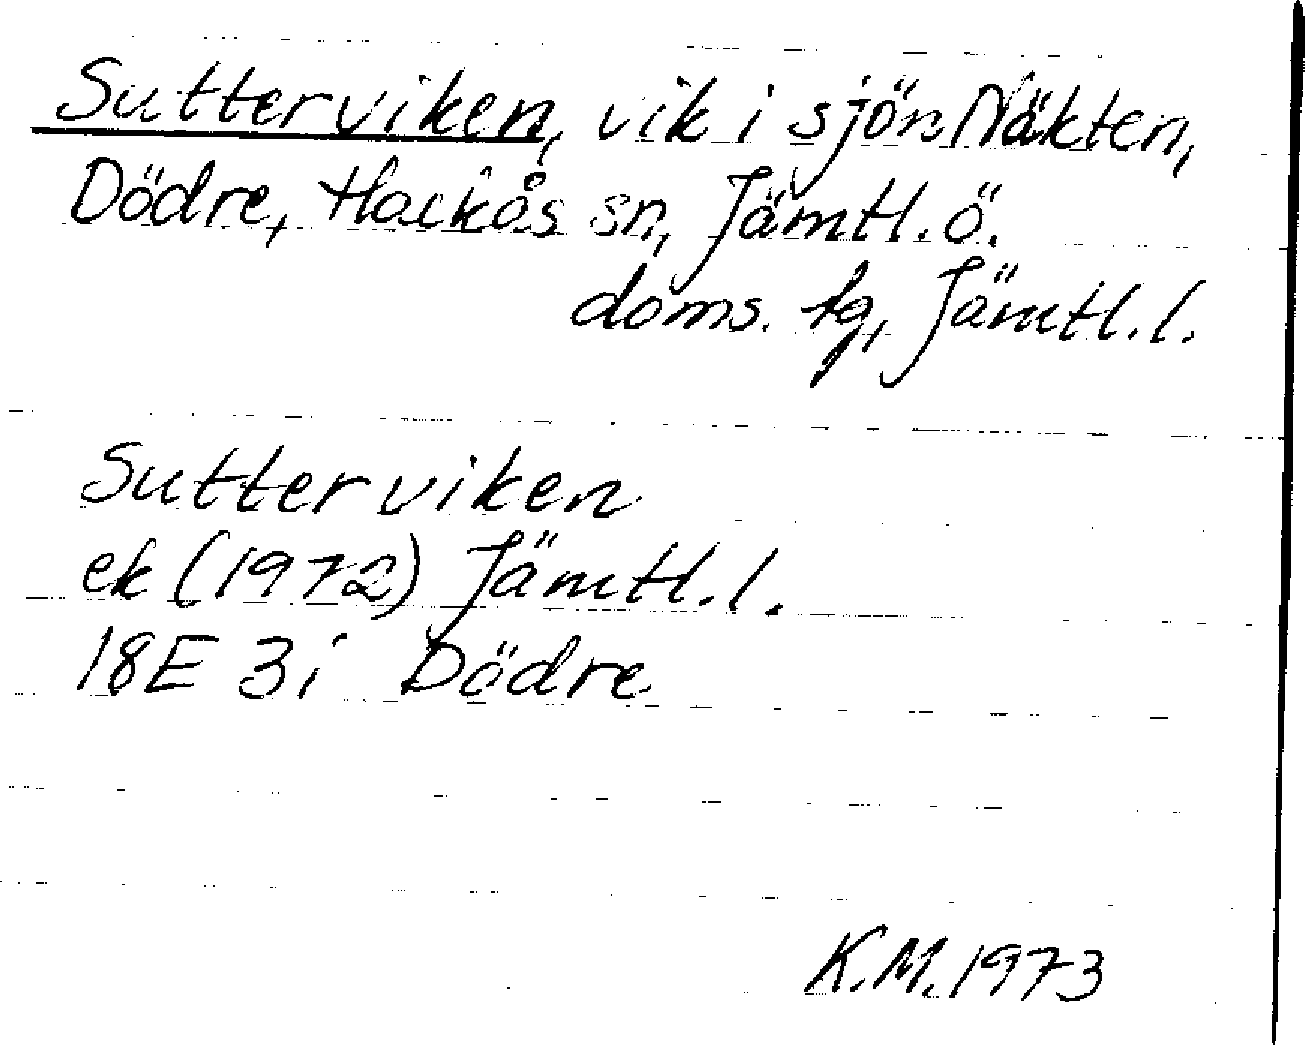 Sutterviken, vik i sjön Näkten,
Dödre, Hackås sn, Jämtl. ö.
doms. tg, Jämtl. l.
Sutterviken
ek (1972) Jämtl. l.
18E 3i Dödre
K.M. 1973